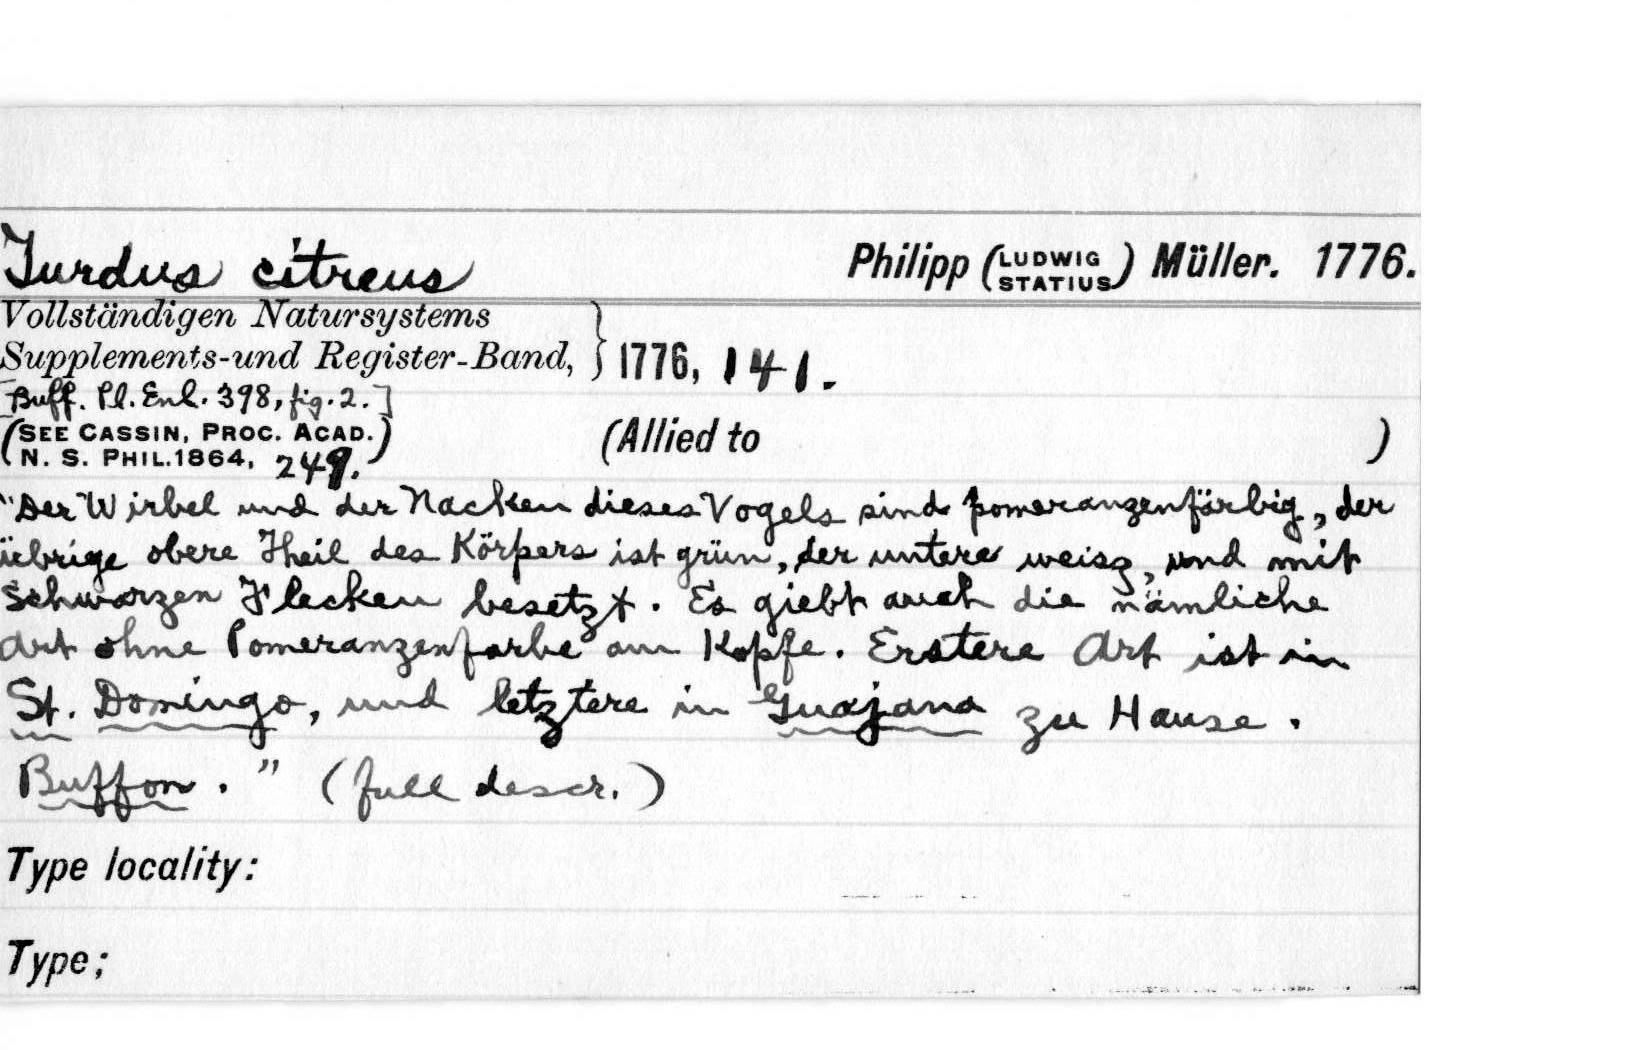 Turdus citreus Philipp (LUDWIG STATIUS) Müller. 1776.
Vollständigen Natursystems
Supplements-und Register-Band, } 1776, 141.
[Buff. Pl. Enl. 398, fig. 2.]
(SEE CASSIN, PROC. ACAD. (Allied to )
N. S. PHIL. 1864, 249.)
"Der Wirbel und der Nacken dieses Vogels sind pomeranzenfärbig, der
üebrige obere Theil des Körpers ist grün, der untere weisz, und mit
schwarzen Flecken besetzt. Es giebt auch die nämliche
Art ohne Pomeranzenfarbe am Kopfe. Erstere Art ist in
St. Domingo, und letztere in Guajana zu Hause.
Buffon." (full descr.)
Type locality:
Type;